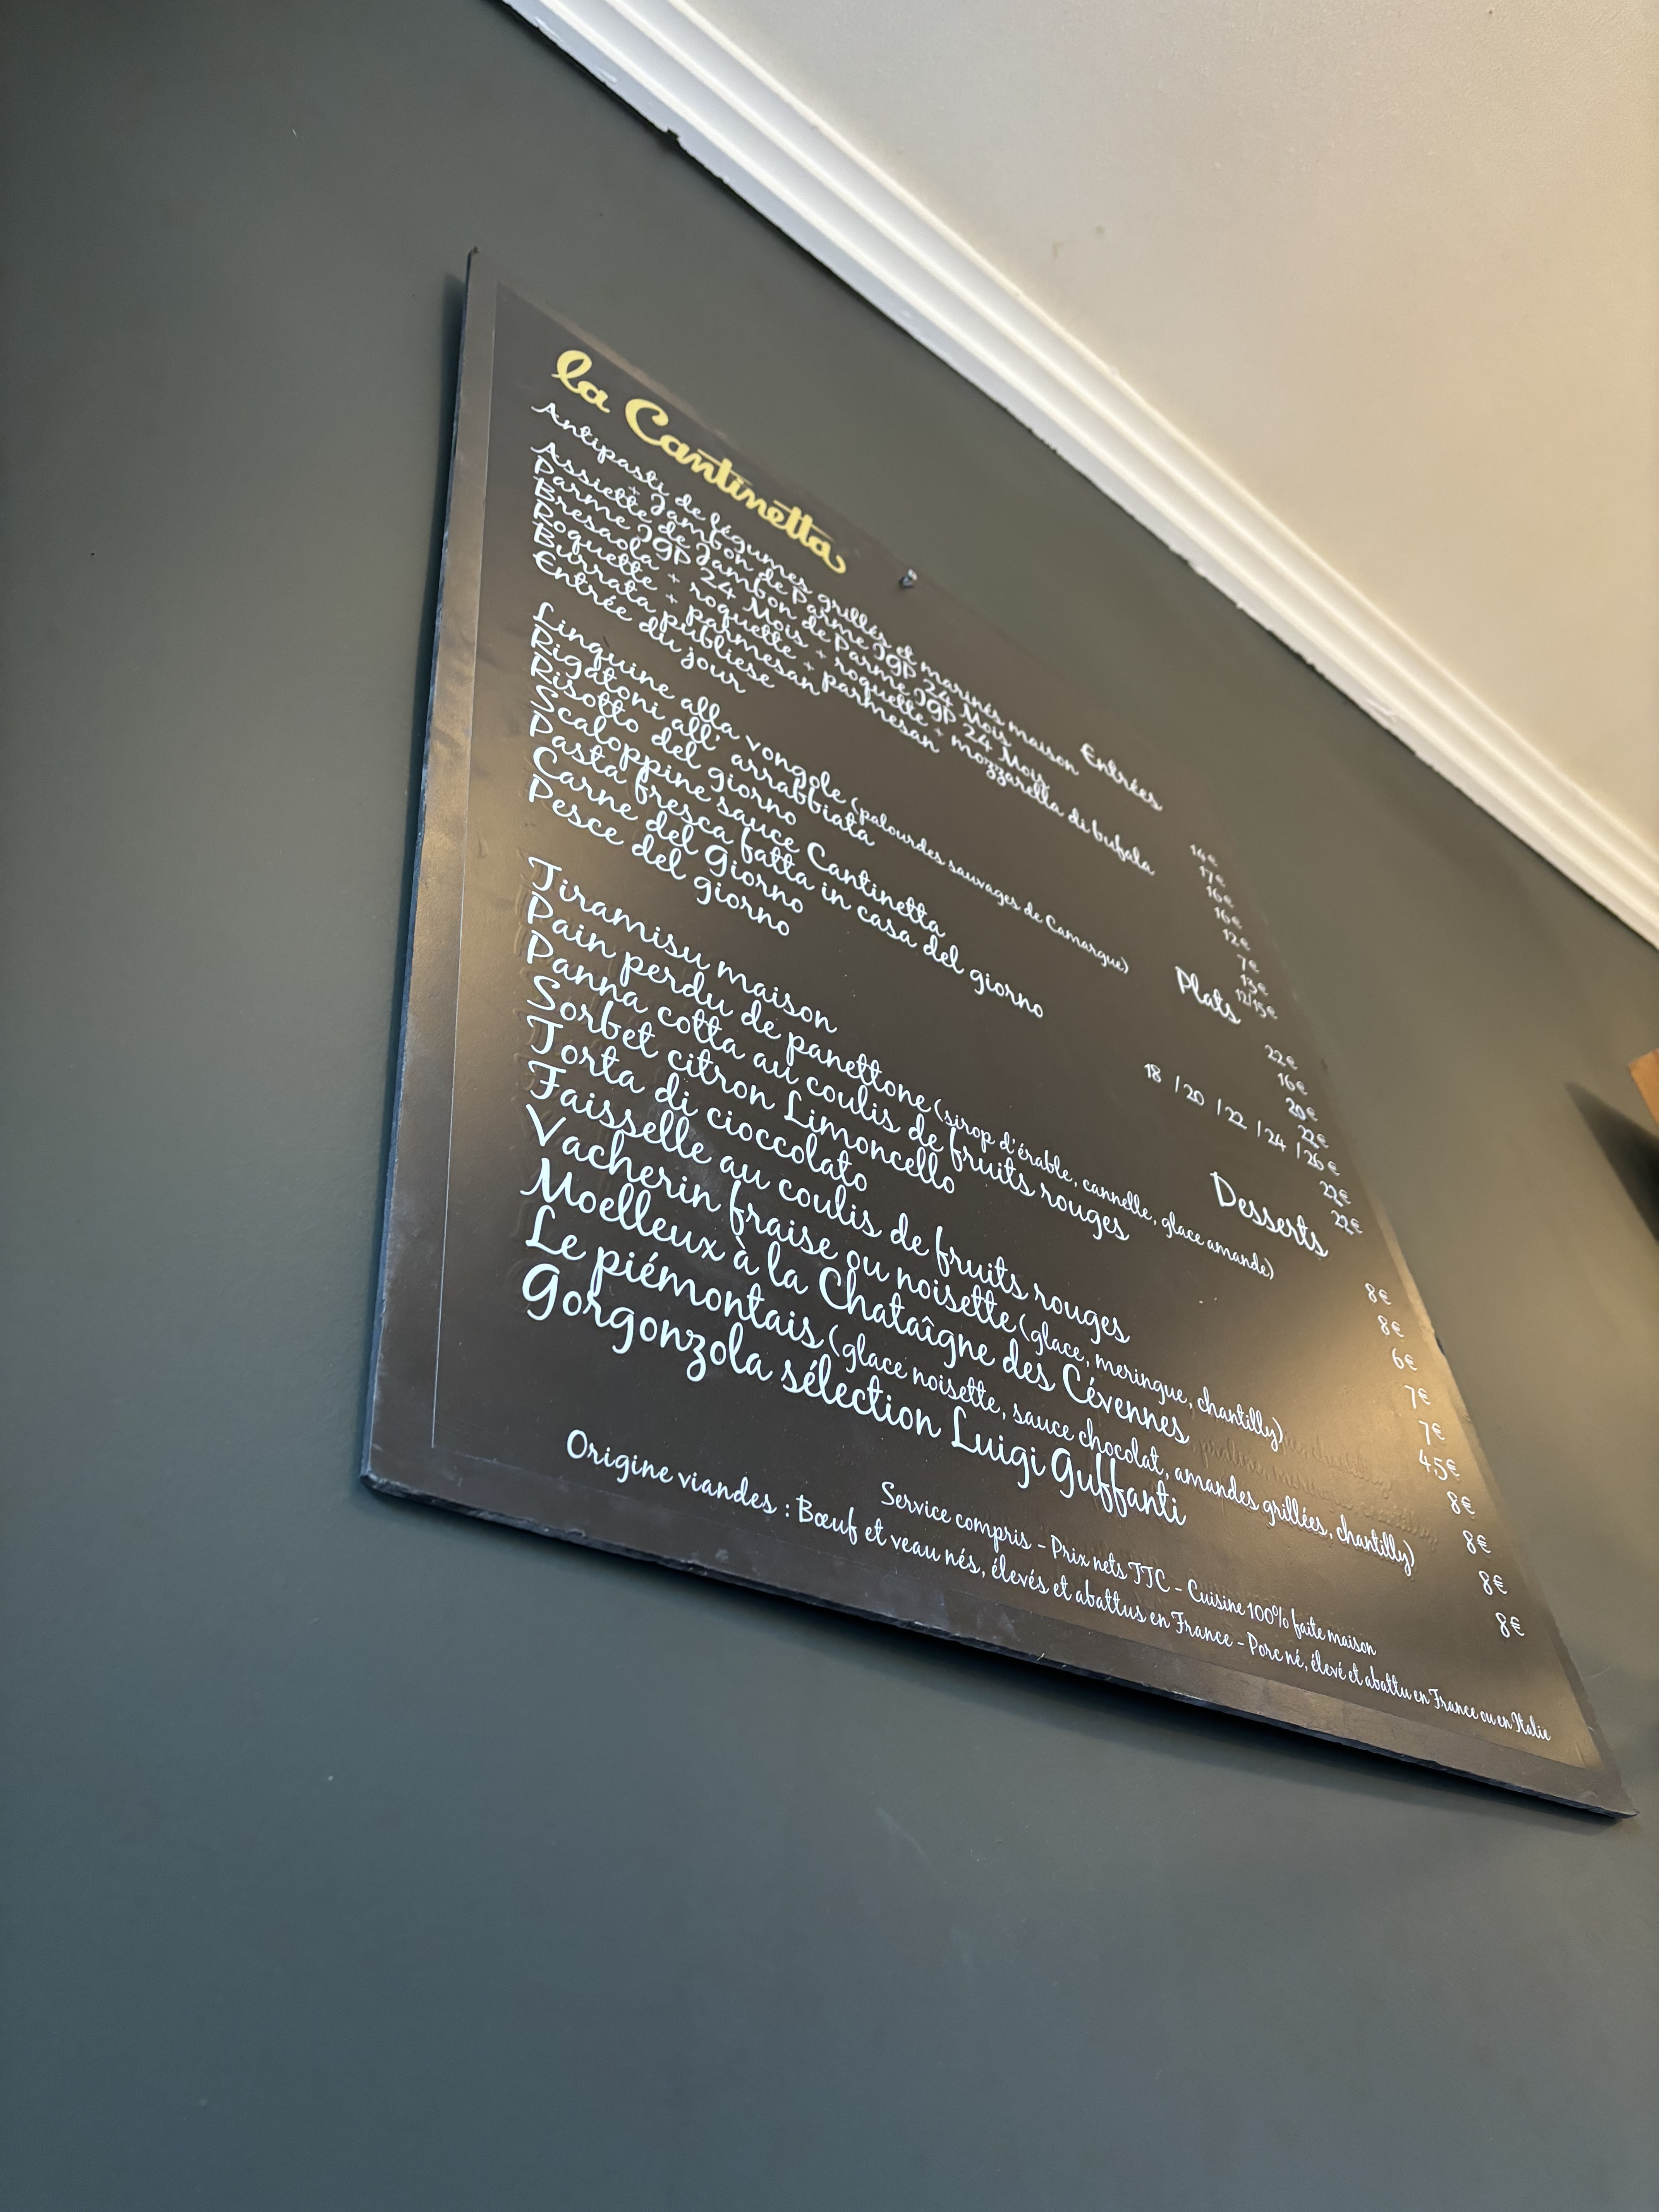 la Cantinetta
Entrées
Antipasti de légumes grillés et marinés maison 14€
+ Jambon de Parme IGP 24 Mois 17€
Assiette de Jambon de Parme IGP 24 Mois 16€
Parme IGP 24 Mois + roquette + mozzarella di bufala 16€
Bresaola + roquette + parmesan 12€
Roquette + parmesan 7€
Burrata publiese 13€
Entrée du jour 12/15€
Plats
Linguine alla vongole (palourdes sauvages de Camargue) 22€
Rigatoni all' arrabbiata 16€
Risotto del giorno 20€
Scaloppine sauce Cantinetta 22€
Pasta fresca fatta in casa del giorno 18 / 20 / 22 / 24 / 26€
Carne del Giorno 22€
Pesce del giorno 22€
Desserts
Tiramisu maison 8€
Pain perdu de panettone (sirop d'érable, cannelle, glace amande) 8€
Panna cotta au coulis de fruits rouges 6€
Sorbet citron Limoncello 7€
Torta di cioccolato 7€
Faisselle au coulis de fruits rouges 45€
Vacherin fraise ou noisette (glace, meringue, chantilly) 8€
Moelleux à la Chataîgne des Cévennes 8€
Le piémontais (glace noisette, sauce chocolat, amandes grillées, chantilly) 8€
Gorgonzola sélection Luigi Guffanti 8€
Service compris - Prix nets TTC - Cuisine 100% faite maison
Origine viandes : Bœuf et veau nés, élevés et abattus en France - Porc né, élevé et abattu en France ou en Italie